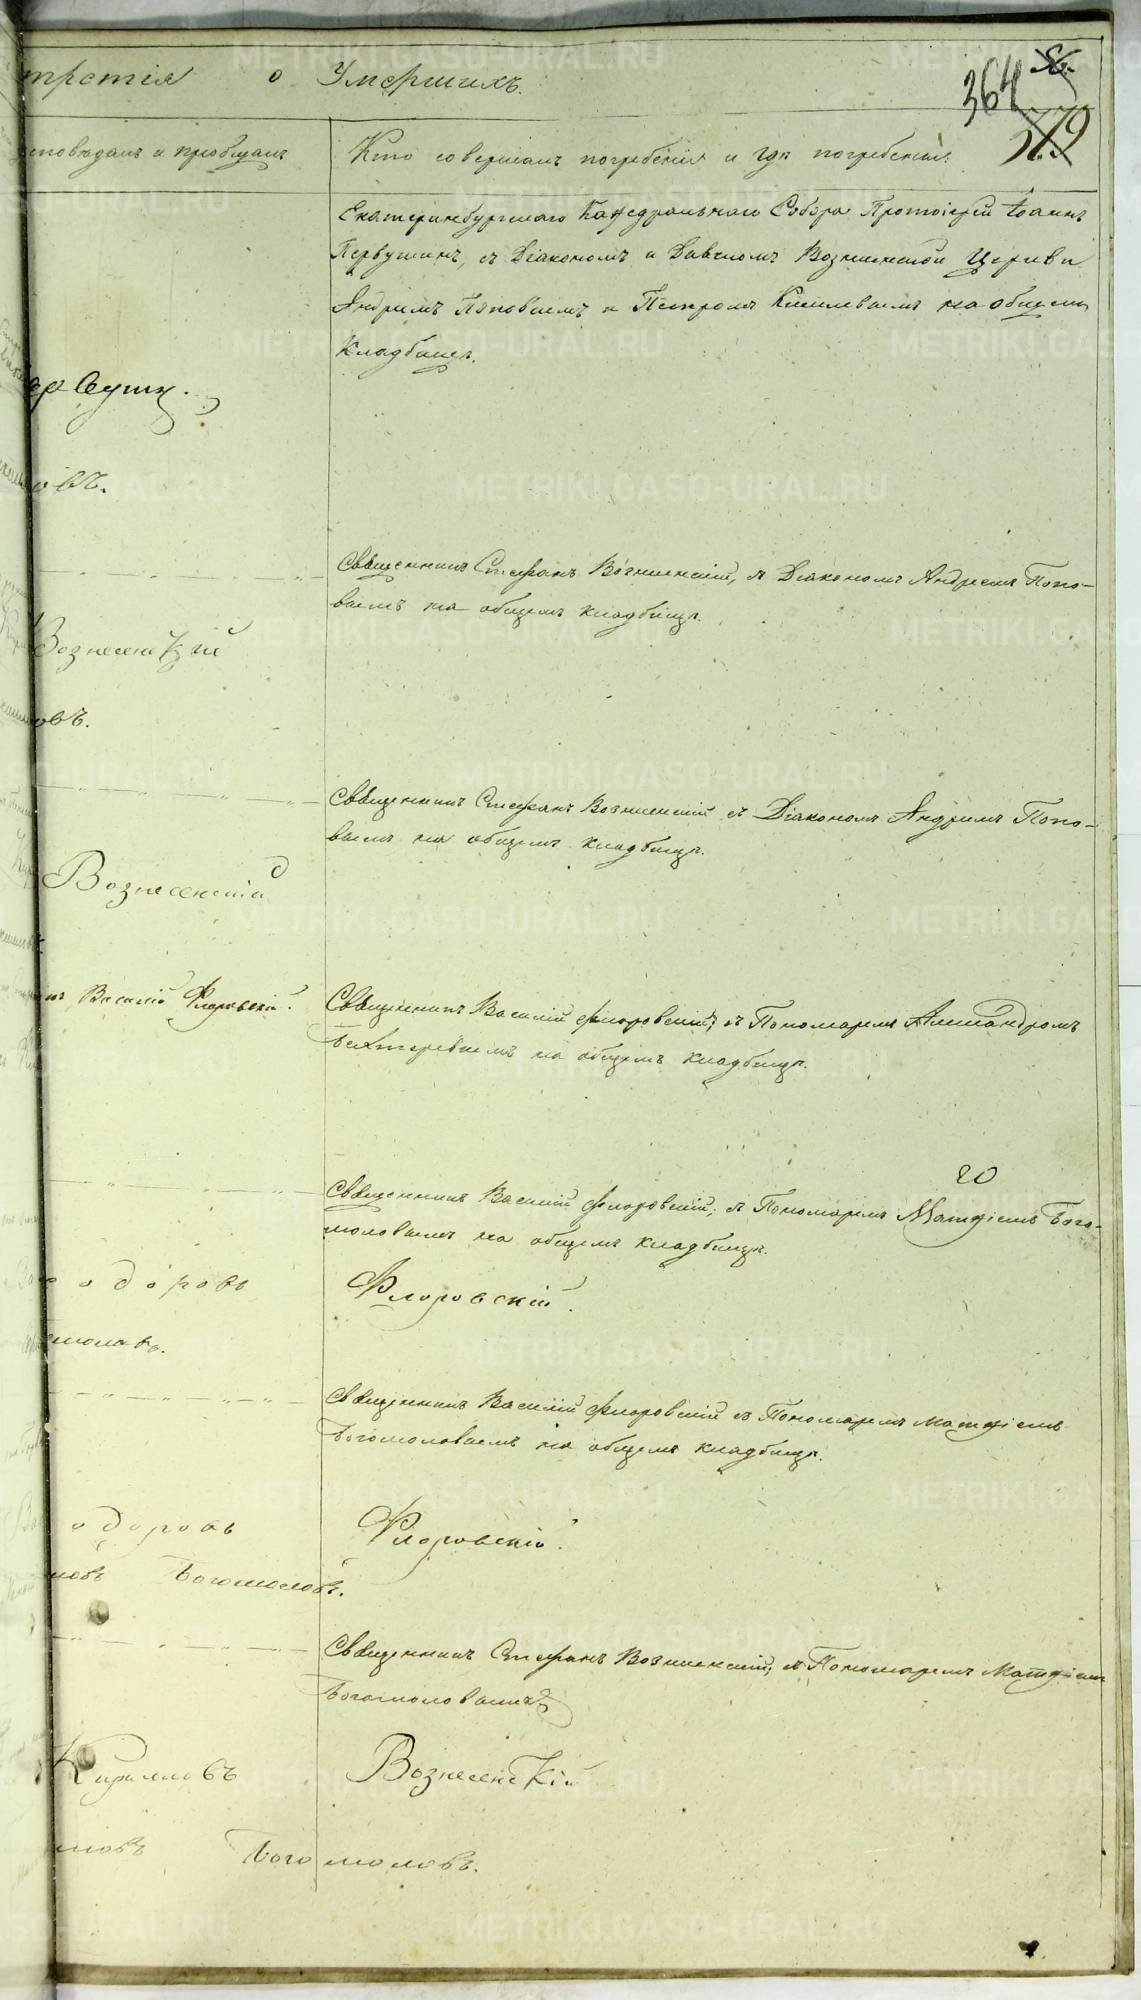 третія о Умершихъ.
364
56.
379
исповѣдалъ и пріобщалъ
Кто совершалъ погребеніе и гдѣ погребены.
Екатеринбургскаго Каѳедральнаго Собора Протоіерей Іоаннъ
Первушинъ, съ Діакономъ и Дьячкомъ Вознесенской Церкви
Андреемъ Поповымъ и Петромъ Киселевымъ на общемъ
Кладбищѣ.
овъ.
Священникъ Стефанъ Вознесенскій, съ Діакономъ Андреемъ Попо-
вымъ на общемъ кладбищѣ.
Вознесенскій
овъ.
Священникъ Стефанъ Вознесенскій съ Діакономъ Андреемъ Попо-
вымъ на общемъ кладбищѣ.
Вознесенскій
Василій Флоровскій.
Священникъ Василій Флоровскій, съ Пономаремъ Александромъ
Бехтеревымъ на общемъ кладбищѣ.
20
Священникъ Василій Флоровскій, съ Пономаремъ Матѳіемъ Бого-
моловымъ на общемъ кладбищѣ.
одоровъ
Флоровскій.
моловъ.
Священникъ Василій Флоровскій съ Пономаремъ Матѳіемъ
Богомоловымъ на общемъ кладбищѣ.
одоровъ
Флоровскій.
Богомоловъ.
Священникъ Стефанъ Вознесенскій, съ Пономаремъ Матѳіемъ
Богомоловымъ
Кирилловъ
Вознесенскій
Богомоловъ.
METRIKI.GASO-URAL.RU